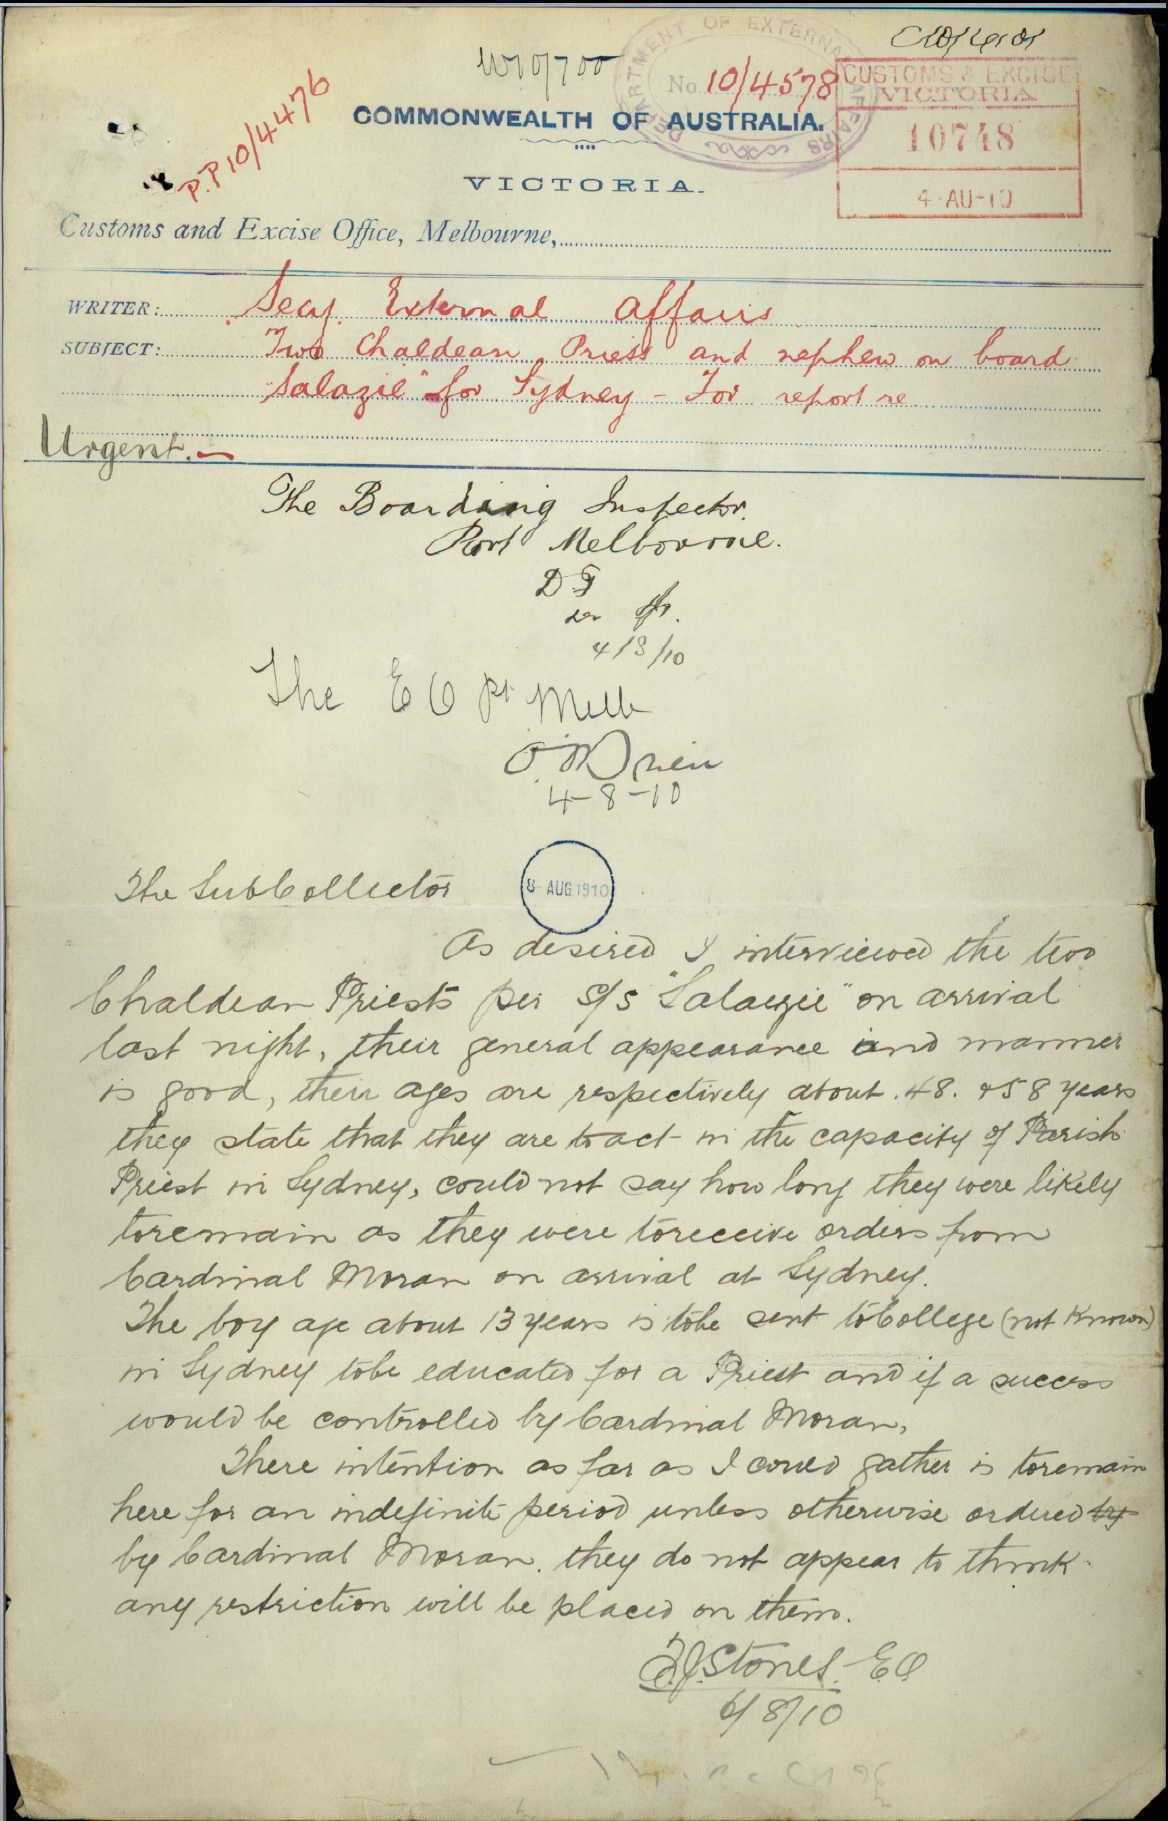 W10/700
DEPARTMENT OF EXTERNAL AFFAIRS
No. 10/4578
CUSTOMS & EXCISE
VICTORIA
10748
4-AU-10
P.P 10/4476
COMMONWEALTH OF AUSTRALIA.
VICTORIA.
Customs and Excise Office, Melbourne,
WRITER: Secy. External Affairs
SUBJECT: Two Chaldean Priests and nephew on board
"Salazie" for Sydney - For report re
Urgent.-
The Boarding Inspector.
Port Melbourne.
4/8/10
The E O Pt Melb
O'Brien
4-8-10
The SubCollector
8 AUG 1910
As desired I interviewed the two
Chaldean Priests per S/S "Salazie" on arrival
last night, their general appearance and manner
is good, their ages are respectively about .48. & 58 years
they state that they are to act in the capacity of Parish
Priest in Sydney, could not say how long they were likely
to remain as they were to receive orders from
Cardinal Moran on arrival at Sydney.
The boy age about 13 years is to be sent to College (not known)
in Sydney to be educated for a Priest and if a success
would be controlled by Cardinal Moran,
There intention as far as I could gather is to remain
here for an indefinite period unless otherwise ordered by
by Cardinal Moran. they do not appear to think
any restriction will be placed on them.
Stones. EO
6/8/10